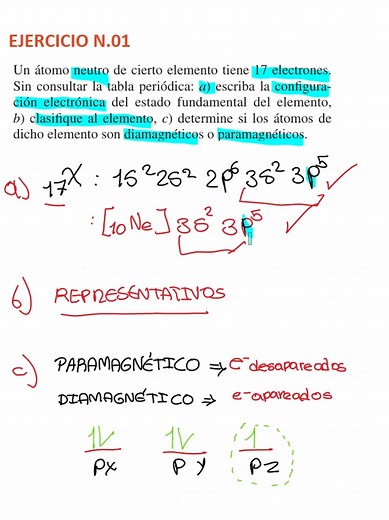 EJERCICIO N.01
Un átomo neutro de cierto elemento tiene 17 electrones.
Sin consultar la tabla periódica: a) escriba la configura-
ción electrónica del estado fundamental del elemento,
b) clasifique al elemento, c) determine si los átomos de
dicho elemento son diamagnéticos o paramagnéticos.
a) ₁₇X : 1s² 2s² 2p⁶ 3s² 3p⁵
: [₁₀Ne] 3s² 3p⁵
b) REPRESENTATIVOS
c) PARAMAGNÉTICO ⇒ e⁻ desapareados
DIAMAGNÉTICO ⇒ e⁻ apareados
1V 1V 1
Px Py Pz